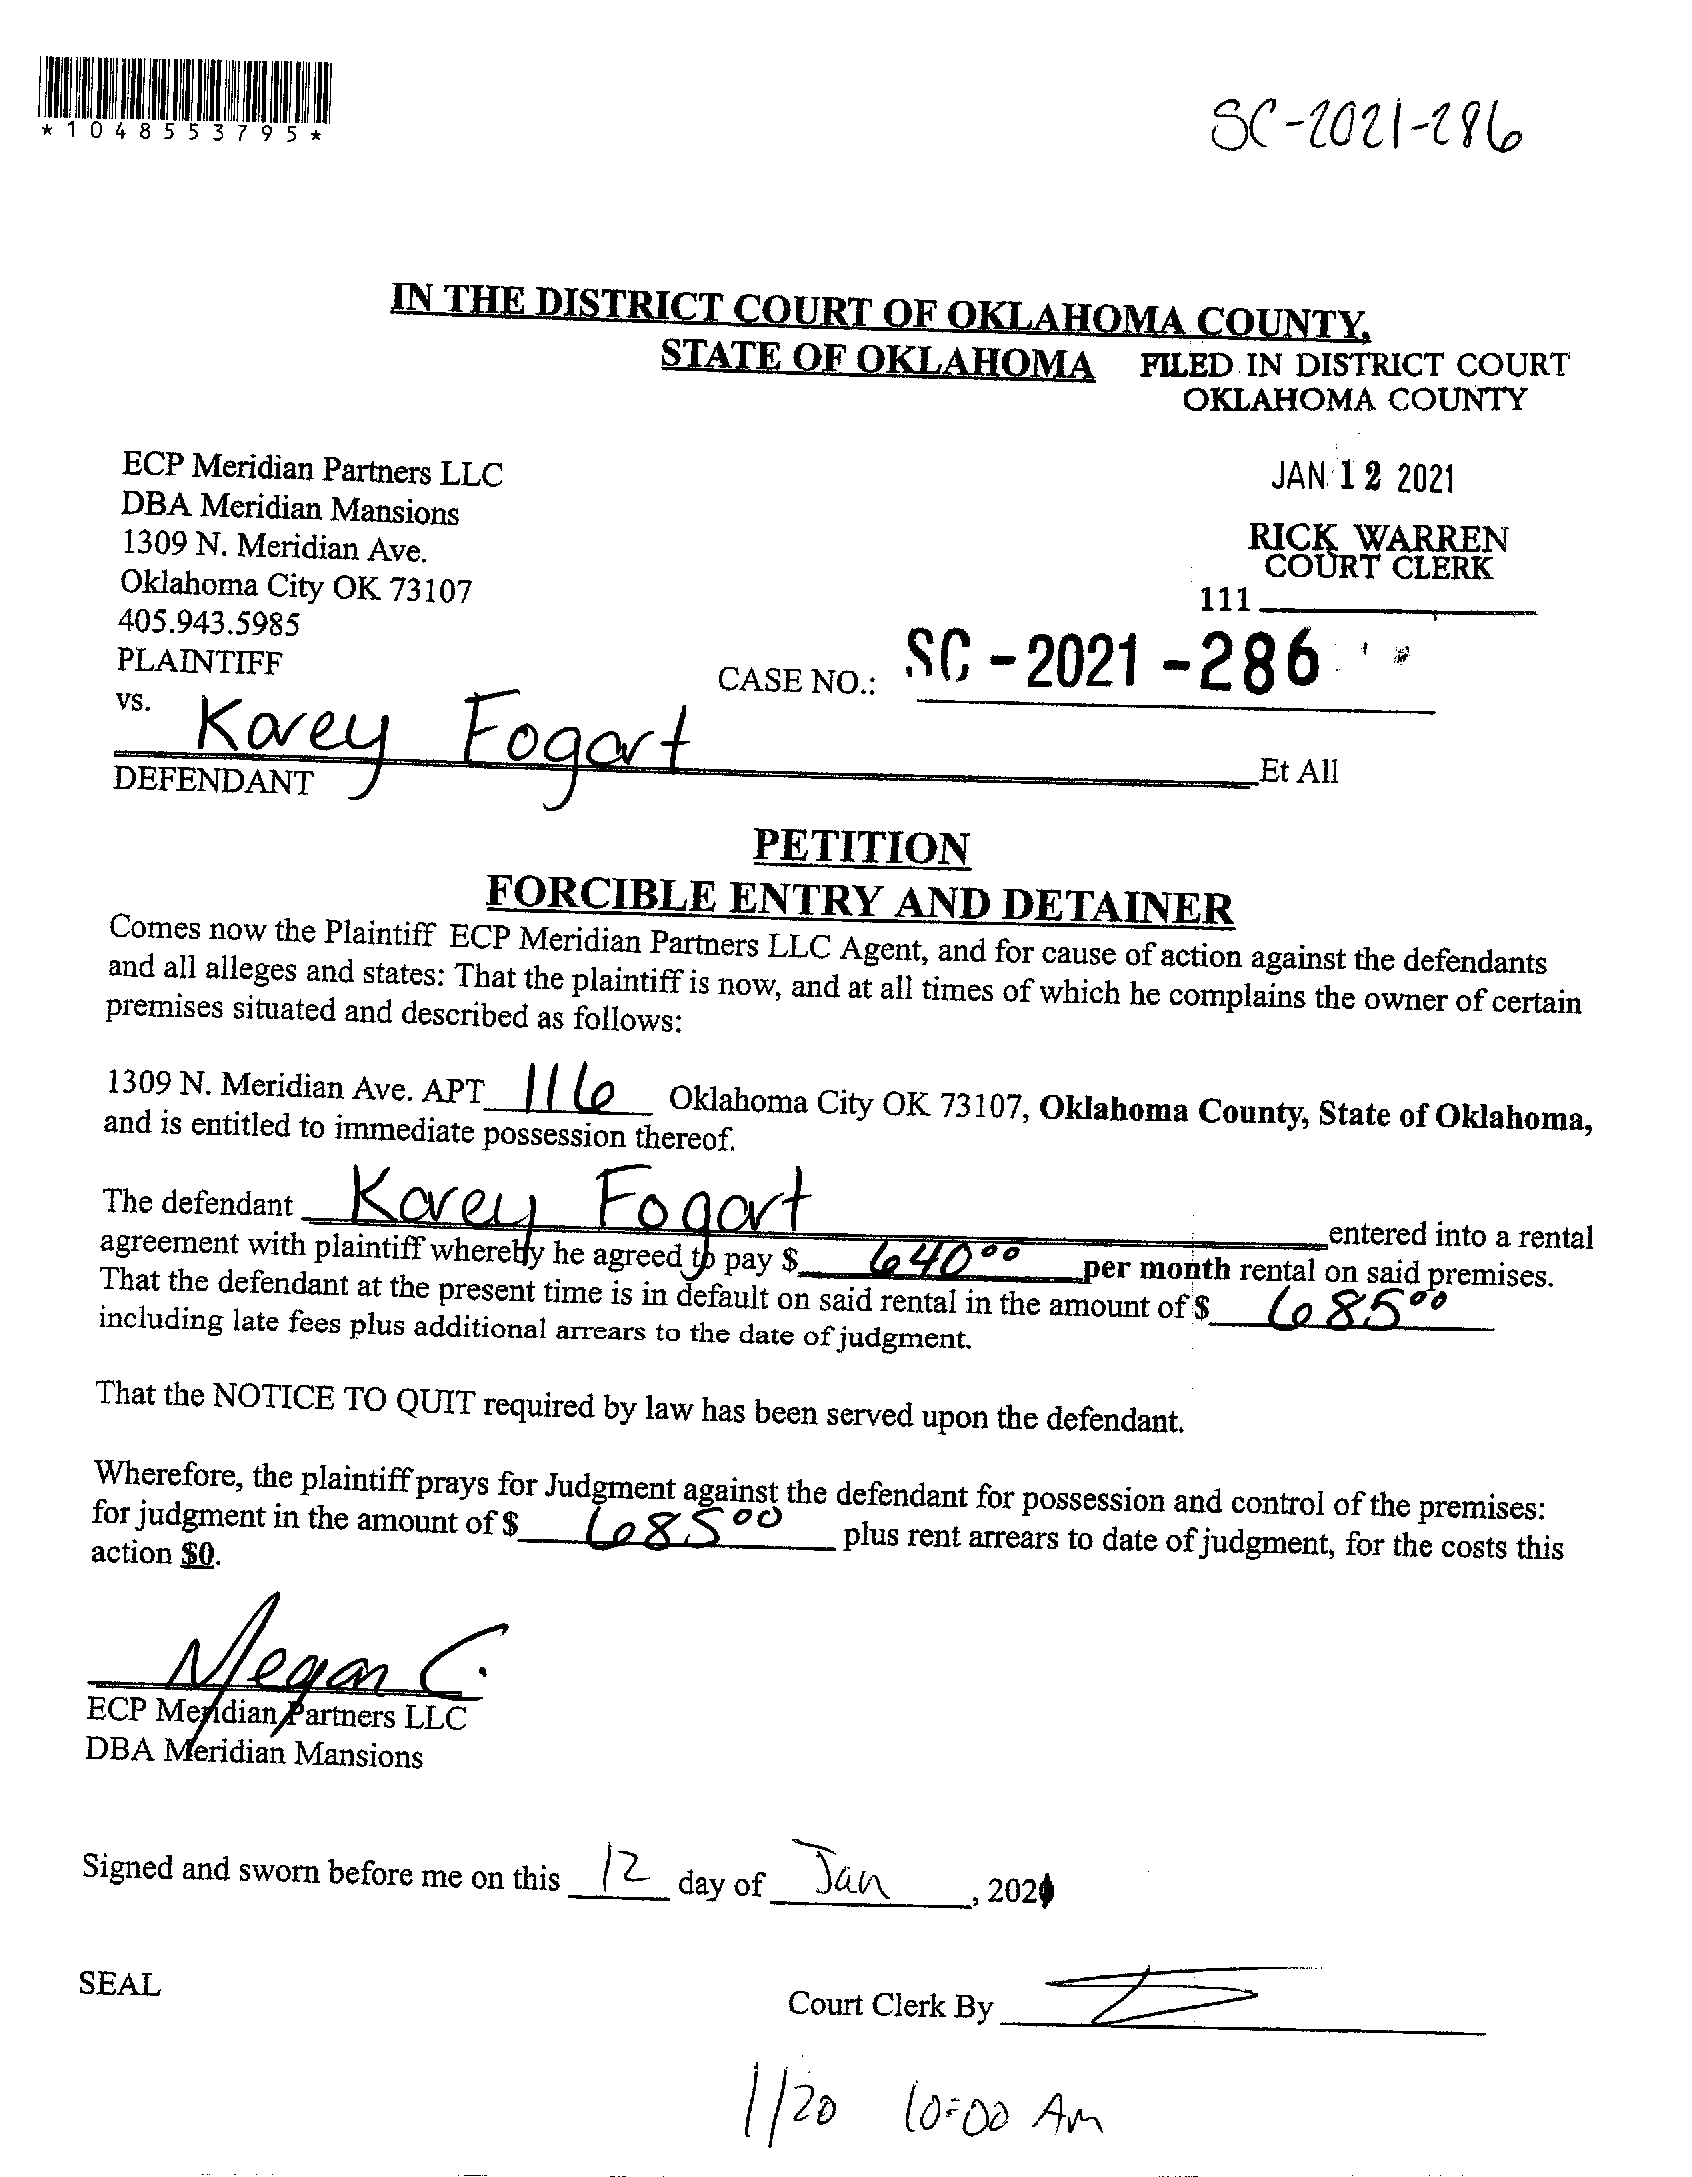 *1048553795*
SC-2021-286
IN THE DISTRICT COURT OF OKLAHOMA COUNTY,
STATE OF OKLAHOMA
FILED IN DISTRICT COURT
OKLAHOMA COUNTY
JAN 12 2021
RICK WARREN
COURT CLERK
111
ECP Meridian Partners LLC
DBA Meridian Mansions
1309 N. Meridian Ave.
Oklahoma City OK 73107
405.943.5985
PLAINTIFF
CASE NO.: SC-2021-286
vs.
Korey Fogart Et All
DEFENDANT
PETITION
FORCIBLE ENTRY AND DETAINER
Comes now the Plaintiff ECP Meridian Partners LLC Agent, and for cause of action against the defendants
and all alleges and states: That the plaintiff is now, and at all times of which he complains the owner of certain
premises situated and described as follows:
1309 N. Meridian Ave. APT 116 Oklahoma City OK 73107, Oklahoma County, State of Oklahoma,
and is entitled to immediate possession thereof.
The defendant Korey Fogart entered into a rental
agreement with plaintiff whereby he agreed to pay $ 640⁰⁰ per month rental on said premises.
That the defendant at the present time is in default on said rental in the amount of $ 685⁰⁰
including late fees plus additional arrears to the date of judgment.
That the NOTICE TO QUIT required by law has been served upon the defendant.
Wherefore, the plaintiff prays for Judgment against the defendant for possession and control of the premises:
for judgment in the amount of $ 685⁰⁰ plus rent arrears to date of judgment, for the costs this
action $0.
Megan C.
ECP Meridian Partners LLC
DBA Meridian Mansions
Signed and sworn before me on this 12 day of Jan, 2021
SEAL
Court Clerk By
1/20 10:00 Am